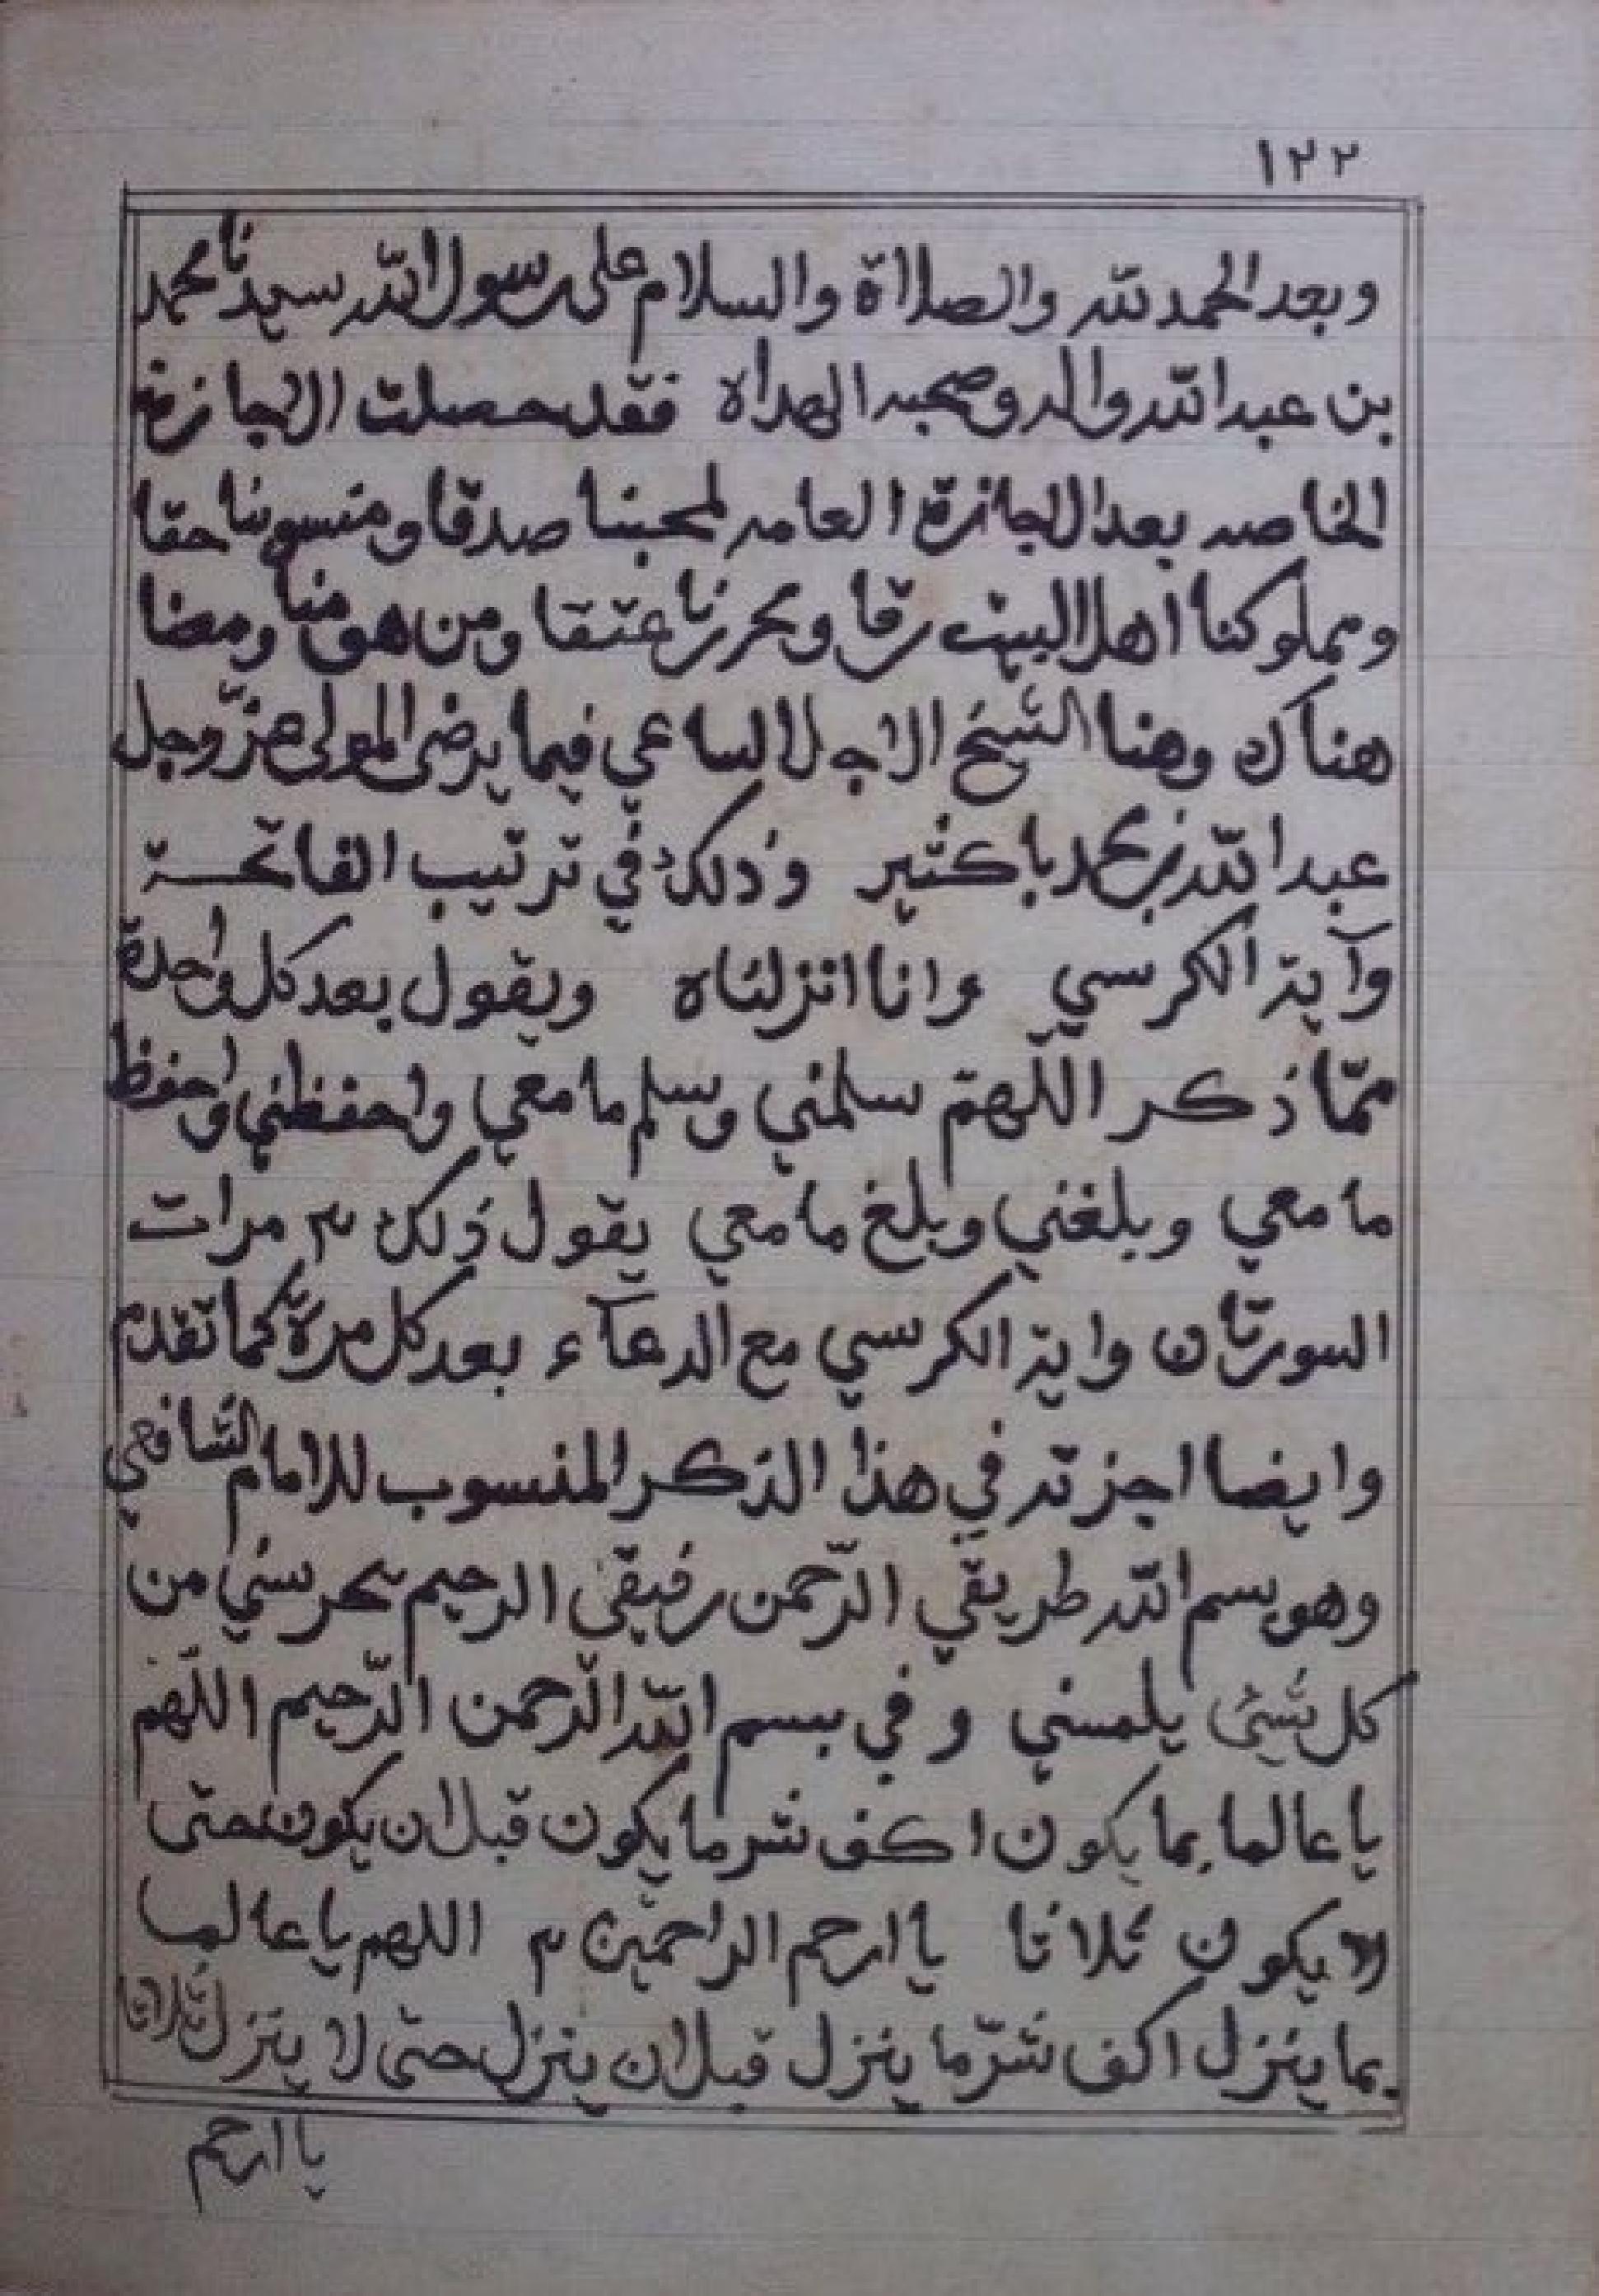 ١٢٢
وبعد الحمد لله والصلاة والسلام على رسول الله سيدنا محمد
بن عبد الله واله وصحبه الهداه فقد حصلت الاجازة
الخاصه بعد الاجازة العامه لمحبنا صدقا ومنسوبنا حقا
ومملوكنا اهل البيت رقا ومحررنا عتقا ومن هو منا ومضا
هناك وهنا الشيخ الاجل الساعي فيما يرضى المولى عزّ وجل
عبد الله بن محمد باكثير وذلك في ترتيب الفاتحة
وآية الكرسي وانا انزلناه ويقول بعد كل واحدة
ممّا ذكر اللّهمّ سلمني وسلم ما معي واحفظني واحفظ
ما معي وبلغني وبلغ ما معي يقول ذلك ٣ مرات
السورتان واية الكرسي مع الدعآء بعد كل مرّة كما تقدم
وايضا اجزته في هذا الذكر المنسوب للامام الشافعي
وهو بسم الله طريقي الرّحمن رفيقي الرحيم يحرسني من
كل شيئ يلمسني وفي بسم الله الرّحمن الرّحيم اللّهم
يا عالما بما يكون اكف شر ما يكون قبل ان يكون حتى
لا يكون ثلاثا يا ارحم الراحمين ٣ اللهم يا عالما
بما ينزل اكف شرّ ما ينزل قبل ان ينزل حتى لا ينزل ثلاثا
يا ارحم